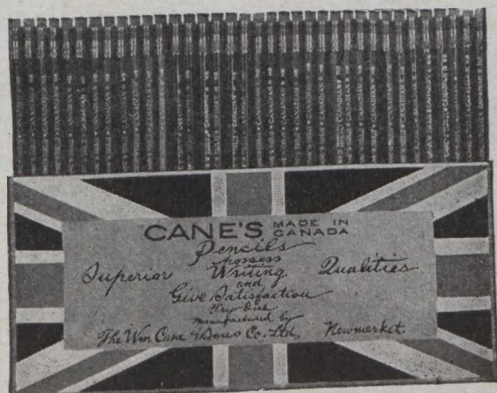 CANE'S MADE IN CANADA
Pencils
possess
Superior Writing Qualities
and
Give Satisfaction
Try One
manufactured by
The Wm Cane & Sons Co. Ltd, Newmarket.